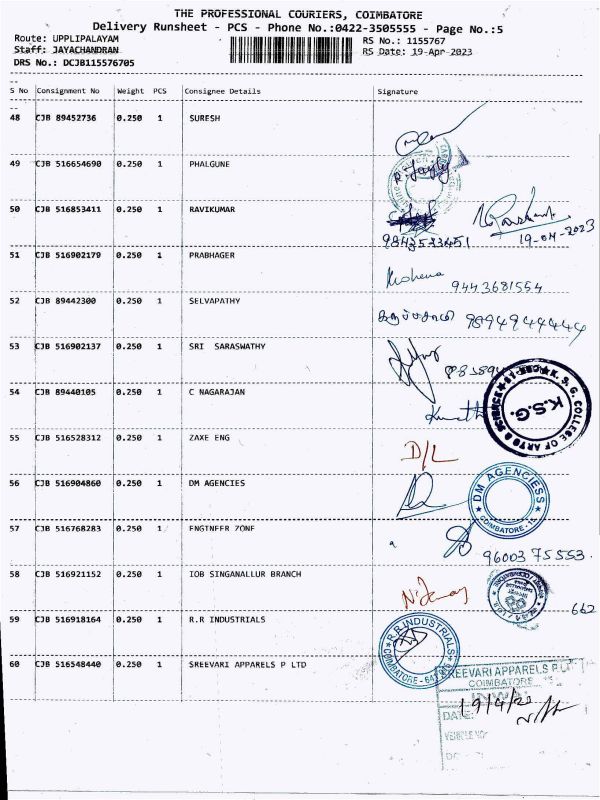 THE PROFESSIONAL COURIERS, COIMBATORE
Delivery Runsheet - PCS - Phone No.:0422-3505555 - Page No.:5
Route: UPPLIPALAYAM RS No.: 1155767
Staff: JAYACHANDRAN RS Date: 19-Apr-2023
DRS No.: DCJB115576705
S No Consignment No Weight PCS Consignee Details Signature
48 CJB 89452736 0.250 1 SURESH
49 CJB 516654690 0.250 1 PHALGUNE
50 CJB 516853411 0.250 1 RAVIKUMAR
19-04-2023
51 CJB 516902179 0.250 1 PRABHAGER
Mohena 9443681554
52 CJB 89442300 0.250 1 SELVAPATHY
கருப்சாமி 9894944444
53 CJB 516902137 0.250 1 SRI SARASWATHY
54 CJB 89440105 0.250 1 C NAGARAJAN
K.S.G. COLLEGE OF ARTS & SCIENCE
K.S.G.
55 CJB 516528312 0.250 1 ZAXE ENG
D/L
56 CJB 516904860 0.250 1 DM AGENCIES
DM AGENCIESS
COIMBATORE - 15
57 CJB 516768283 0.250 1 ENGINEER ZONE
96003 75553
58 CJB 516921152 0.250 1 IOB SINGANALLUR BRANCH
662
59 CJB 516918164 0.250 1 R.R INDUSTRIALS
R.R.INDUSTRIALS
COIMBATORE - 641
60 CJB 516548440 0.250 1 SREEVARI APPARELS P LTD
SREEVARI APPARELS P
COIMBATORE
INWA
DATE: 19/4/2
VEHICLE NO